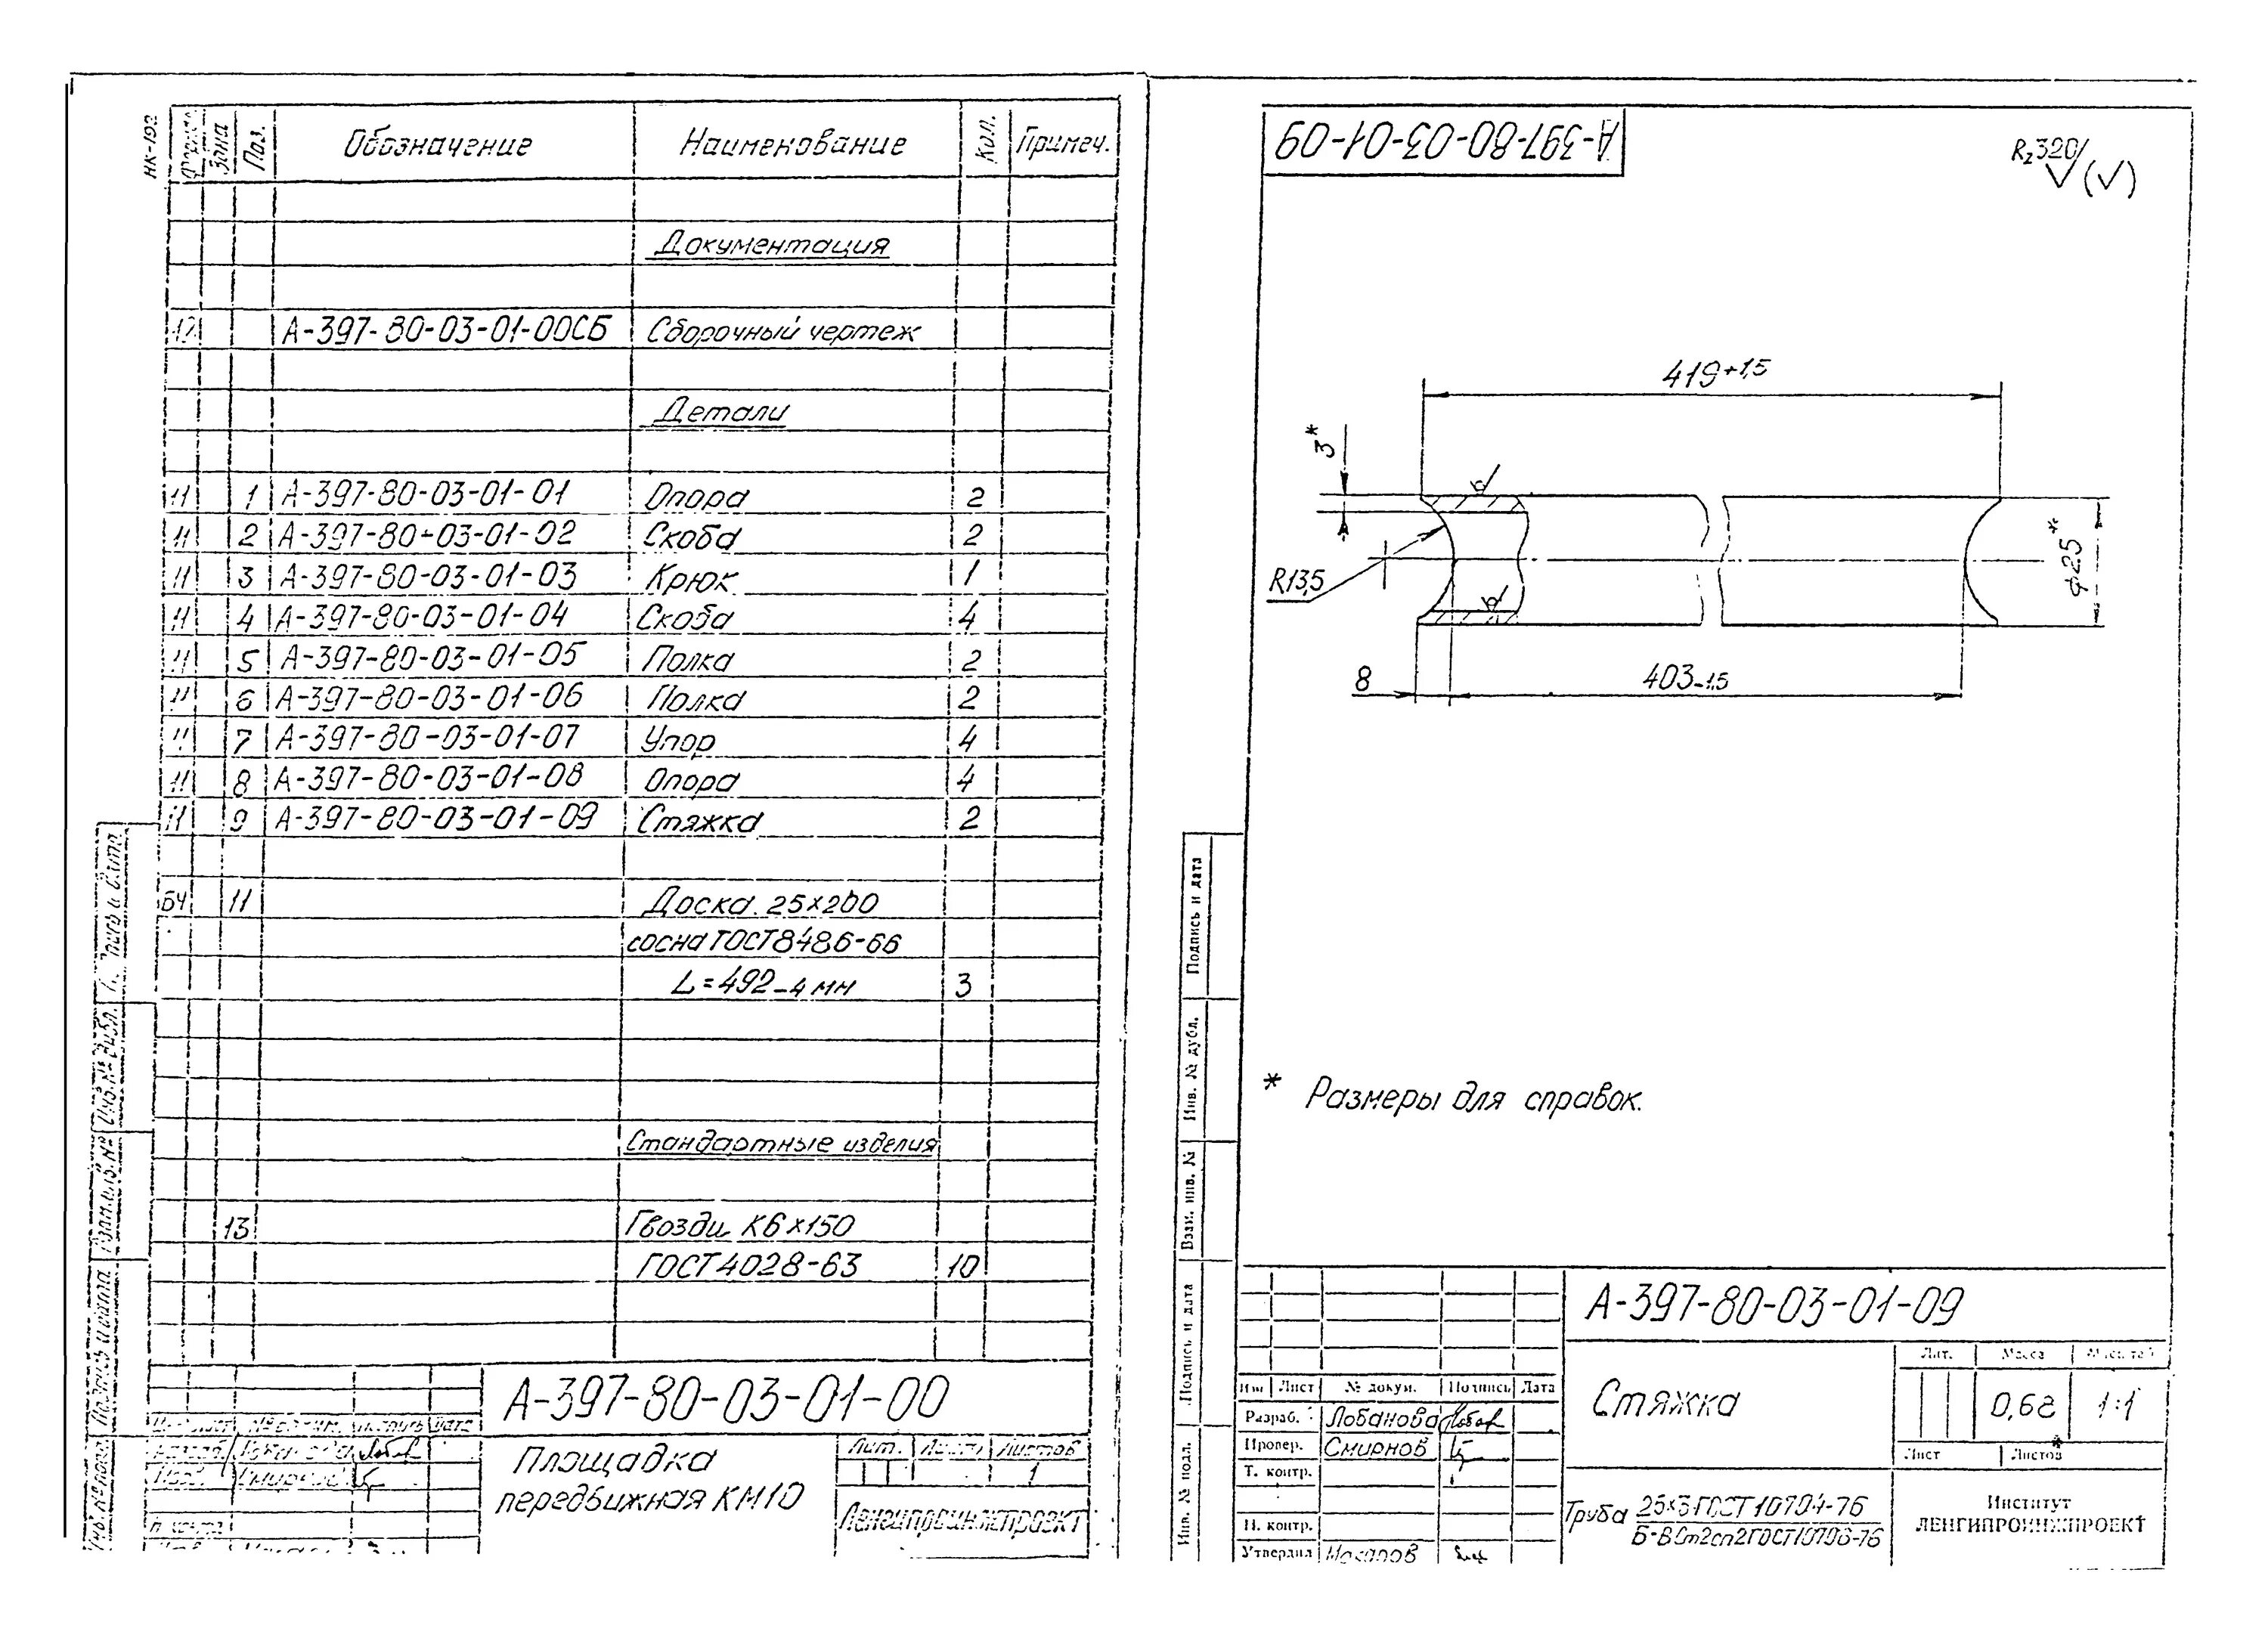 НК-192
Формат Зона Поз. Обозначение Наименование Кол. Примеч.
Документация
12 А-397-80-03-01-00СБ Сборочный чертеж
Детали
11 1 А-397-80-03-01-01 Опора 2
11 2 А-397-80-03-01-02 Скоба 2
11 3 А-397-80-03-01-03 Крюк 1
11 4 А-397-80-03-01-04 Скоба 4
11 5 А-397-80-03-01-05 Полка 2
11 6 А-397-80-03-01-06 Полка 2
11 7 А-397-80-03-01-07 Упор 4
11 8 А-397-80-03-01-08 Опора 4
11 9 А-397-80-03-01-09 Стяжка 2
БЧ 11 Доска 25×200
сосна ГОСТ 8486-66
L=492-4 мм 3
Стандартные изделия
13 Гвозди К6×150
ГОСТ 4028-63 10
А-397-80-03-01-00
Площадка
передвижная КМ10
Лит. Лист Листов
1
Ленгипроинжпроект
Инв. № подл. Подпись и дата Взам. инв. № Инв. № дубл.
А-397-80-03-01-09
Rz320 (√)
419+1,5
3*
R13,5
⌀25*
8
403-1,5
* Размеры для справок.
Подпись и дата
Инв. № дубл.
Взам. инв. №
Подпись и дата
Инв. № подл.
А-397-80-03-01-09
Изм Лист № докум. Подпись Дата
Разраб. Лобанова
Провер. Смирнов
Т. контр.
Н. контр.
Утвердил Макаров
Стяжка
Лит. Масса Масштаб
0,68 1:1
Лист Листов
Труба 25×3 ГОСТ 10704-76
Б-ВСт2сп2 ГОСТ 10706-76
Институт
ЛЕНГИПРОИНЖПРОЕКТ